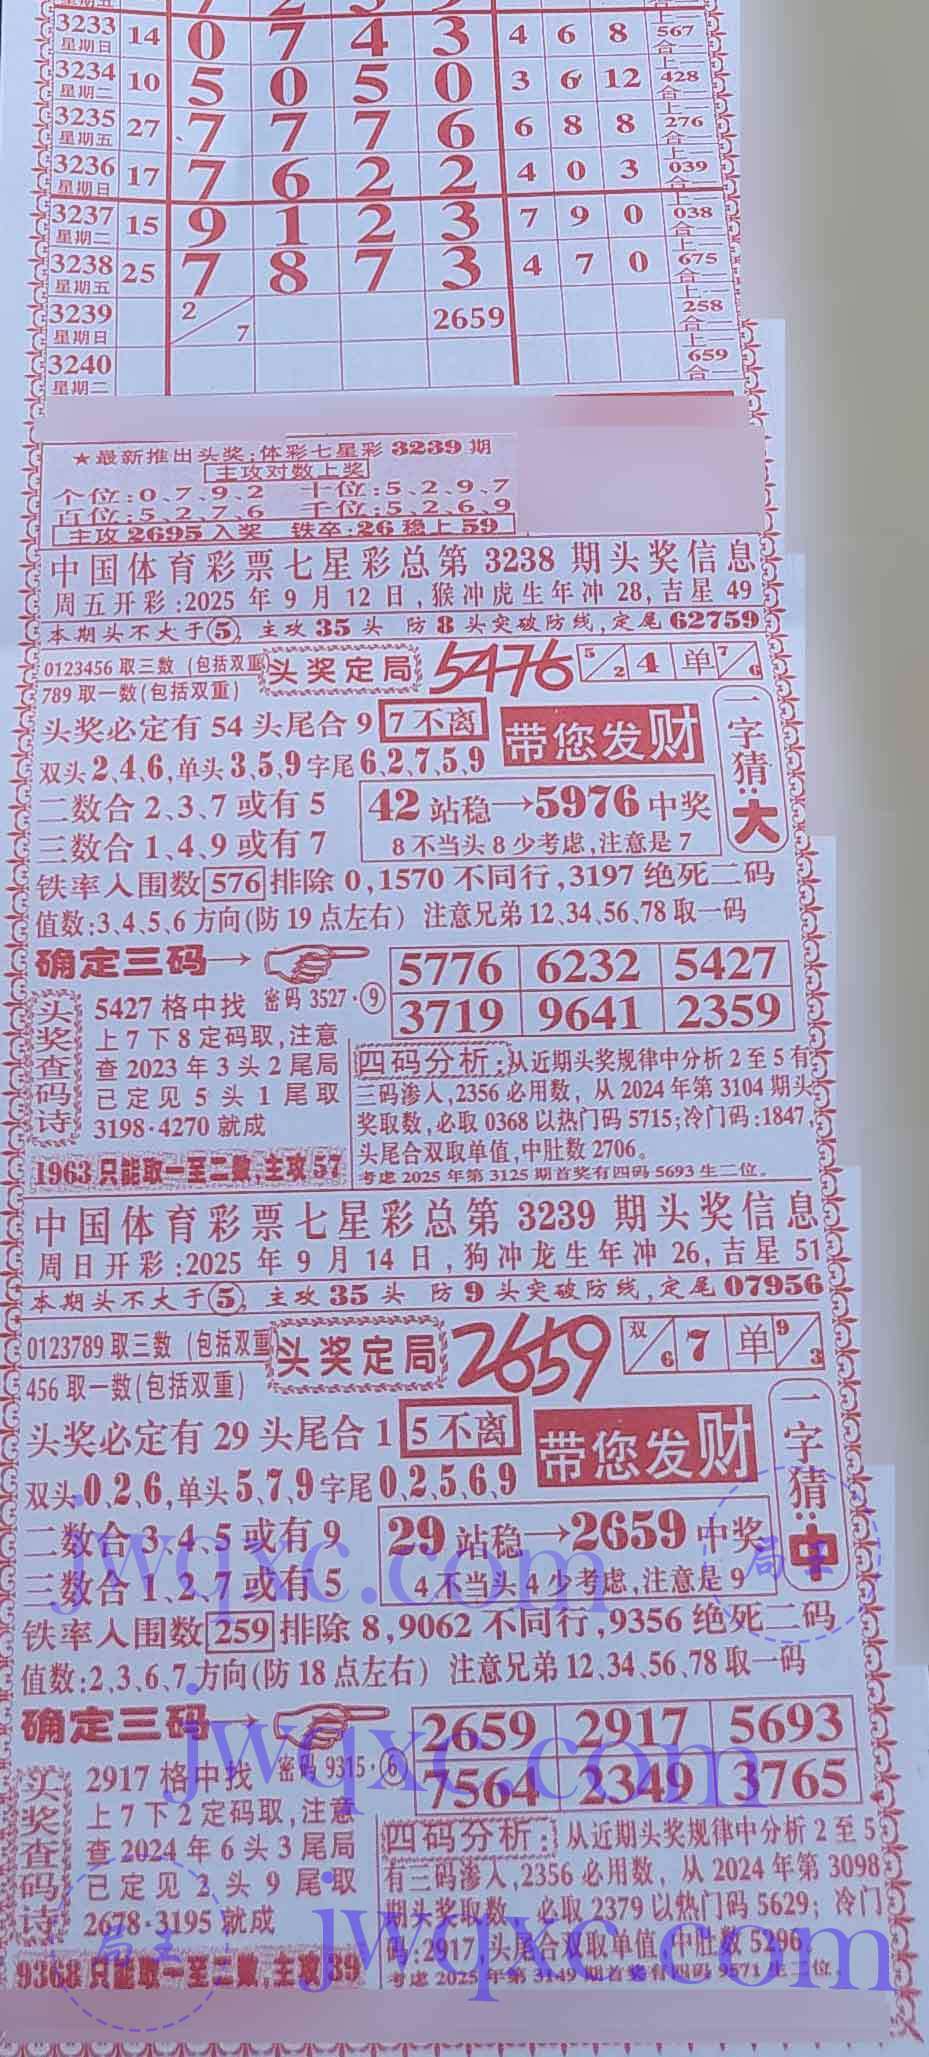 3233 星期日 14 0 7 4 3 4 6 8 上一 567 合一
3234 星期二 10 5 0 5 0 3 6 12 上一 428 合一
3235 星期五 27 7 7 7 6 6 8 8 上一 276 合一
3236 星期日 17 7 6 2 2 4 0 3 上一 039 合一
3237 星期二 15 9 1 2 3 7 9 0 上一 038 合一
3238 星期五 25 7 8 7 3 4 7 0 上一 675 合一
3239 星期日 2/7 2659 上一 258 合一
3240 星期二 上一 659 合一
★最新推出头奖:体彩七星彩3239期
主攻对数上奖
个位:0、7、9、2 十位:5、2、9、7
百位:5、2、7、6 千位:5、2、6、9
主攻2695入奖 铁卒:26稳上59
中国体育彩票七星彩总第3238期头奖信息
周五开彩:2025年9月12日,猴冲虎生年冲28,吉星49
本期头不大于⑤,主攻35头 防8头突破防线,定尾62759
0123456取三数(包括双重)
789取一数(包括双重)
头奖定局 5476 5/2 4 单 7/6
头奖必定有54头尾合9 7不离
双头2、4、6,单头3、5、9字尾6、2、7、5、9
带您发财
一字猜:大
二数合2、3、7或有5
三数合1、4、9或有7
42站稳→5976中奖
8不当头8少考虑,注意是7
铁率入围数576排除0,1570不同行,3197绝死二码
值数:3、4、5、6方向(防19点左右) 注意兄弟12、34、56、78取一码
确定三码→
5776 6232 5427
3719 9641 2359
头奖查码诗
5427格中找 密码3527·⑨
上7下8定码取,注意
查2023年3头2尾局
已定见5头1尾取
3198·4270就成
1963只能取一至二数,主攻57
四码分析:从近期头奖规律中分析2至5有
三码渗入,2356必用数,从2024年第3104期头
奖取数,必取0368以热门码5715;冷门码:1847,
头尾合双取单值,中肚数2706。
考虑2025年第3125期首奖有四码5693生二位。
中国体育彩票七星彩总第3239期头奖信息
周日开彩:2025年9月14日,狗冲龙生年冲26,吉星51
本期头不大于⑤,主攻35头 防9头突破防线,定尾07956
0123789取三数(包括双重
456取一数(包括双重)
头奖定局 2659 双/6 7 单 9/3
头奖必定有29头尾合1 5不离
双头0、2、6,单头5、7、9字尾0、2、5、6、9
带您发财
一字猜:中
二数合3、4、5或有9
三数合1、2、7或有5
29站稳→2659中奖
4不当头4少考虑,注意是9
铁率入围数259排除8,9062不同行,9356绝死二码
值数:2、3、6、7方向(防18点左右) 注意兄弟12、34、56、78取一码
确定三码→
2659 2917 5693
7564 2349 3765
头奖查码诗
2917格中找 密码9315·⑥
上7下2定码取,注意
查2024年6头3尾局
已定见2头9尾取
2678·3195就成
9368只能取一至二数,主攻39
四码分析:从近期头奖规律中分析2至5
有三码渗入,2356必用数,从2024年第3098
期头奖取数,必取2379以热门码5629;冷门
码:2917,头尾合双取单值,中肚数5296。
考虑2025年第3149期首奖有四码9571生二位。
jwqxc.com
jwqxc.com
jwqxc.com